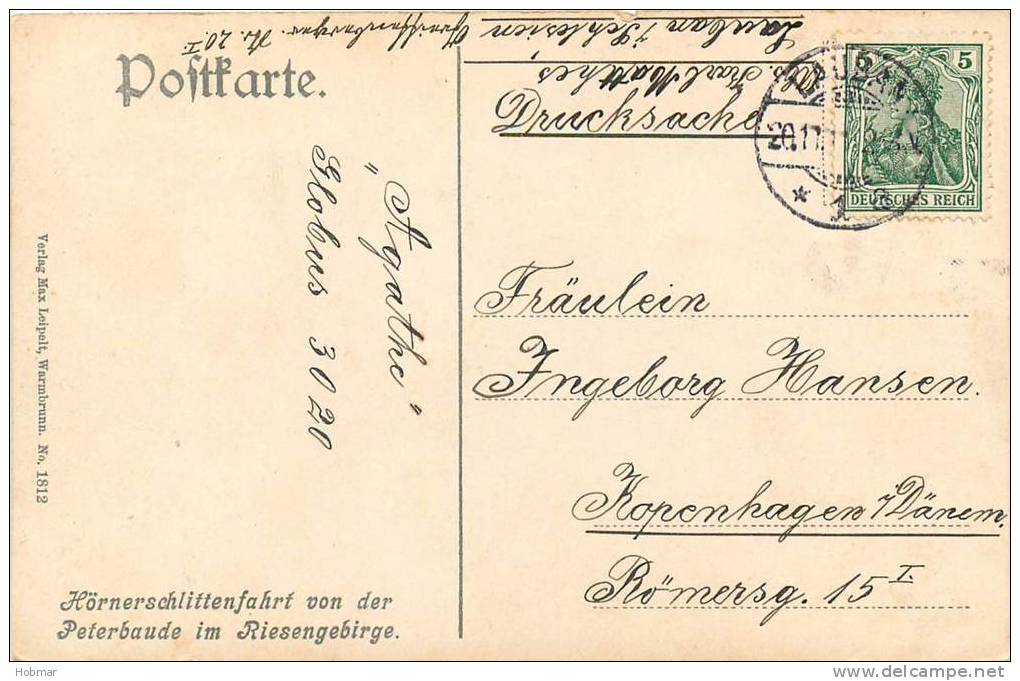 Postkarte.
Greiffenberger Str. 20 I
Lauban i/Schlesien
Abs. Karl Matthes,
Drucksache
5 5
DEUTSCHES REICH
LAUBAN
"Agathe"
Globus 3020
Fräulein
Ingeborg Hansen.
Kopenhagen i/Dänem.
Römersg. 15 I.
Verlag Max Leipelt, Warmbrunn. No. 1812
Hörnerschlittenfahrt von der
Peterbaude im Riesengebirge.
Hobmar
www.delcampe.net